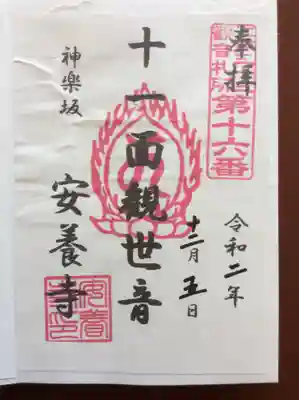 奉拝
第十六番
令和二年
十二月五日
十一面觀世音
神楽坂
安養寺